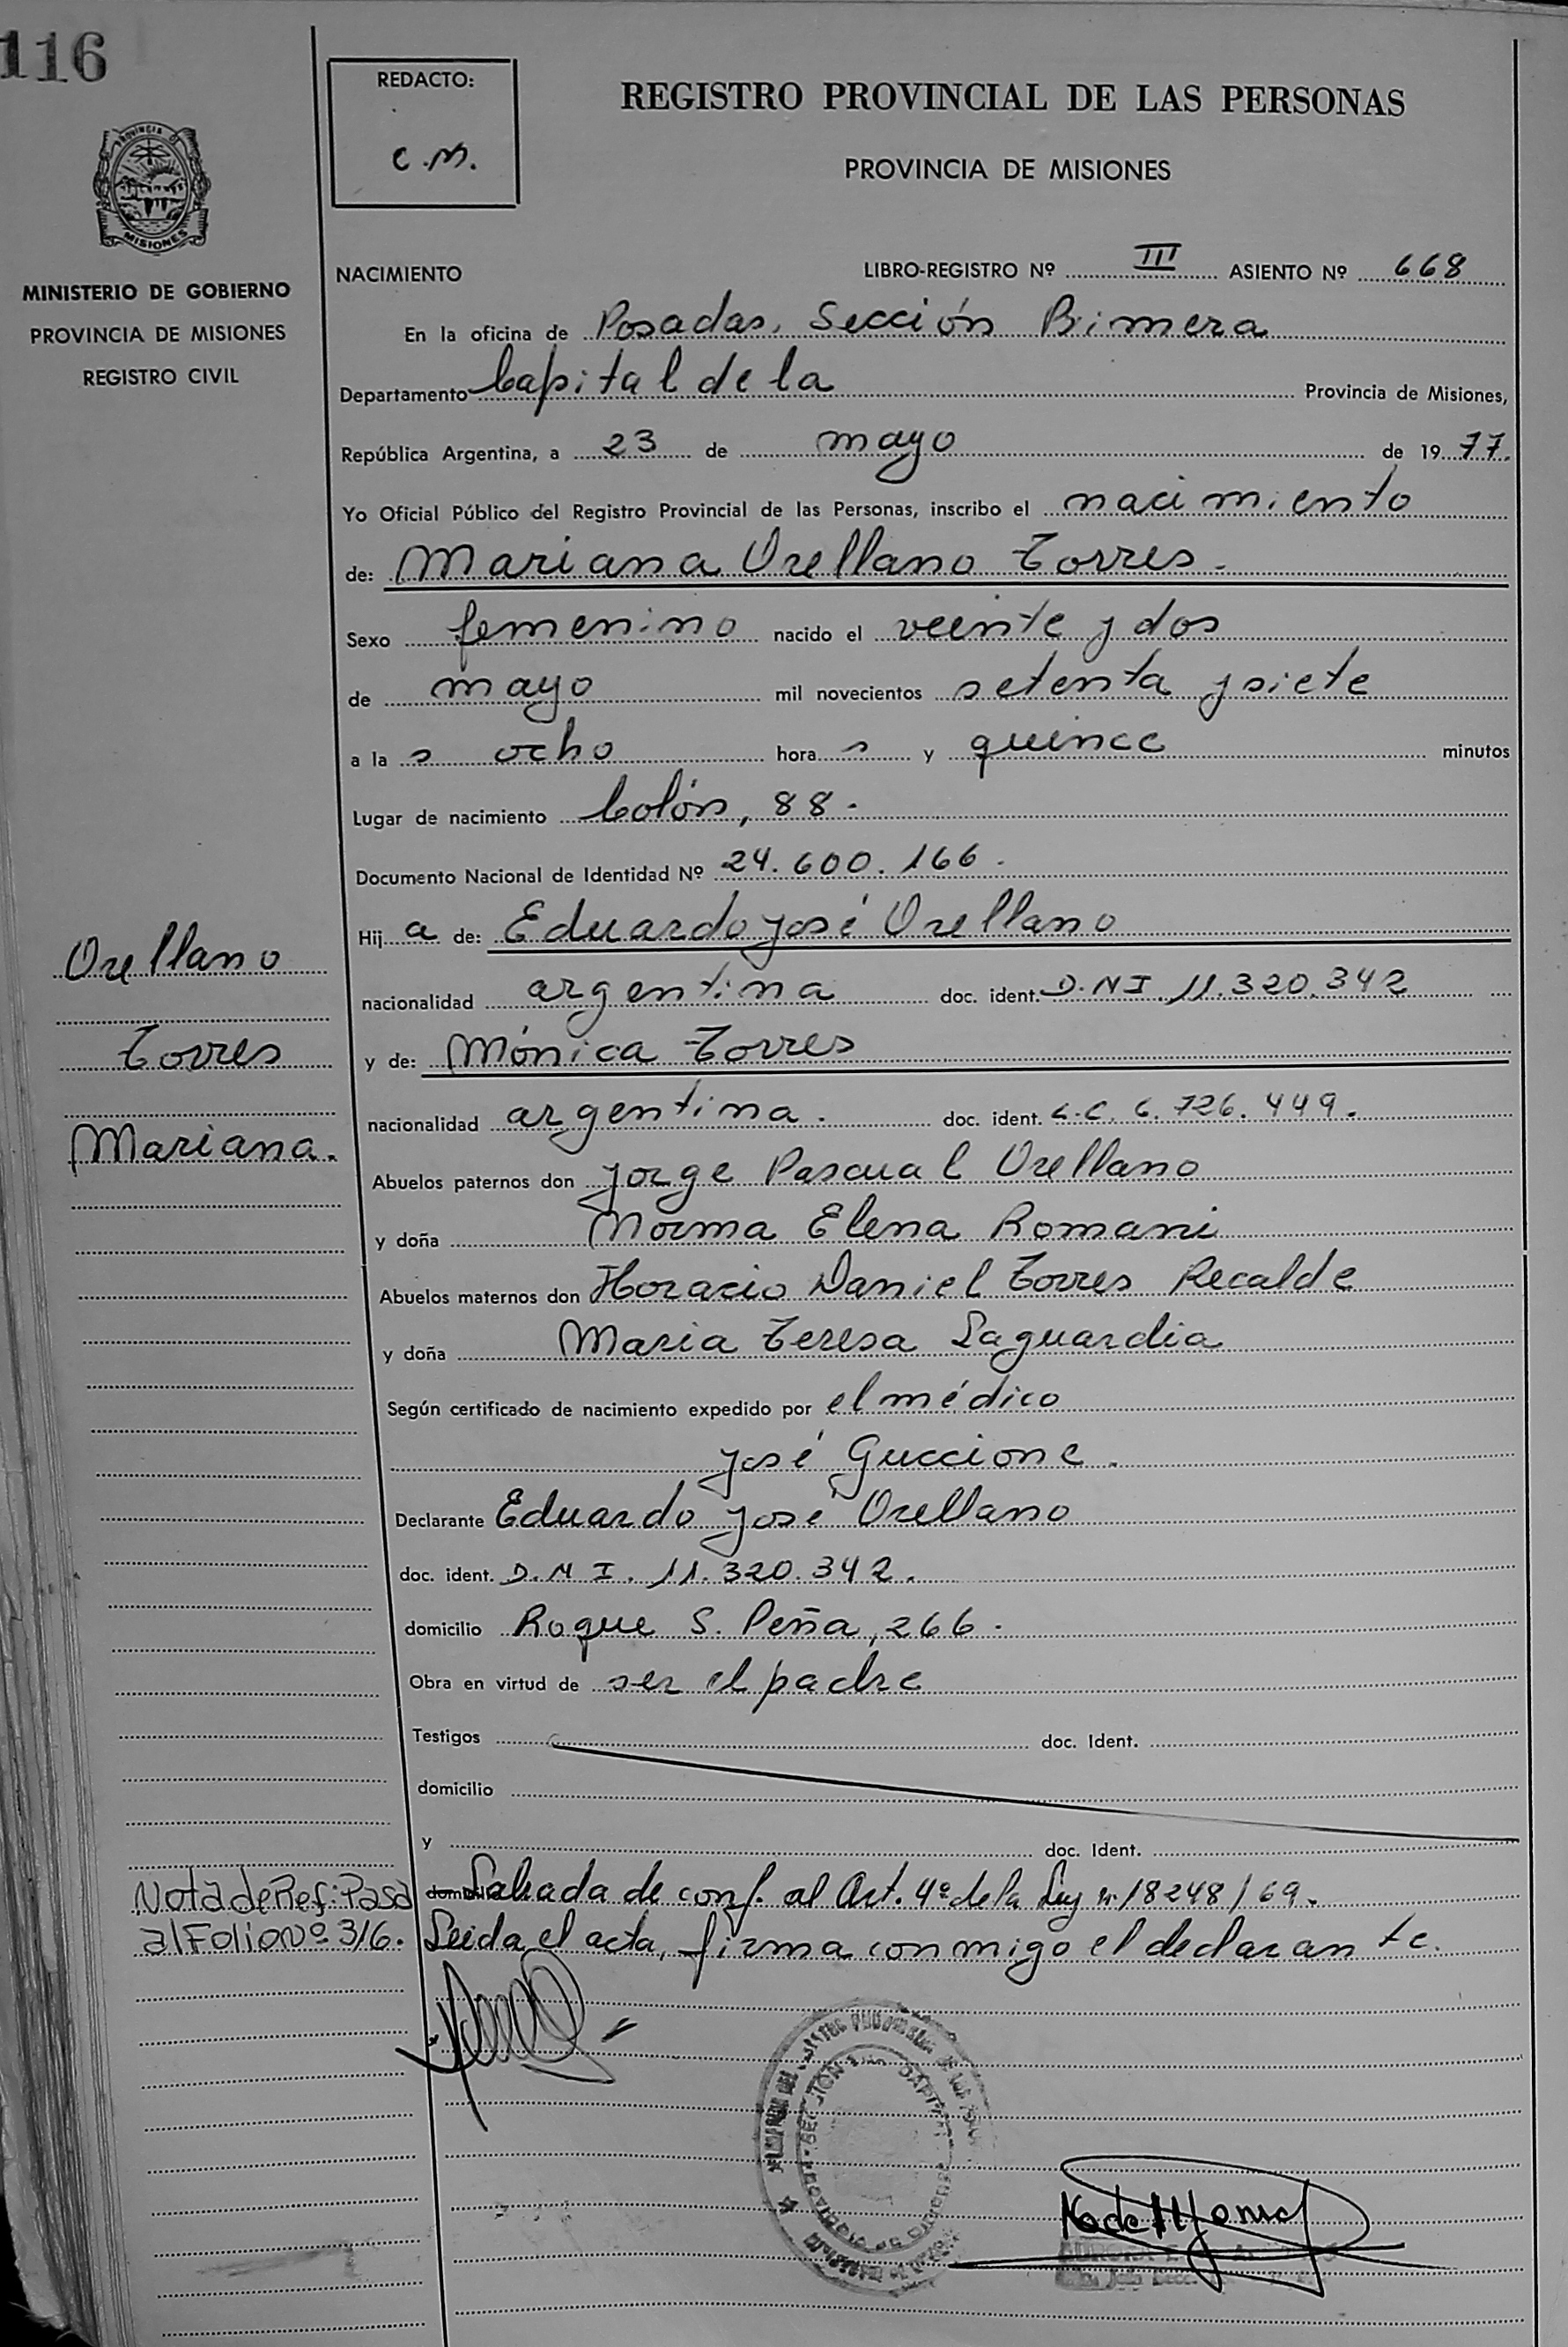 116
REDACTO:
C.M.
REGISTRO PROVINCIAL DE LAS PERSONAS
PROVINCIA DE MISIONES
PROVINCIA DE
MISIONES
MINISTERIO DE GOBIERNO
PROVINCIA DE MISIONES
REGISTRO CIVIL
NACIMIENTO
LIBRO-REGISTRO Nº III ASIENTO Nº 668
En la oficina de Posadas, Sección Primera
Departamento Capital de la Provincia de Misiones,
República Argentina, a 23 de mayo de 1977.
Yo Oficial Público del Registro Provincial de las Personas, inscribo el nacimiento
de: Mariana Orellano Torres.
Sexo femenino nacido el veinte y dos
de mayo mil novecientos setenta y siete
a la s ocho hora s y quince minutos
Lugar de nacimiento Colón, 88.
Documento Nacional de Identidad Nº 24.600.166.
Hij a de: Eduardo José Orellano
nacionalidad argentina doc. ident. D.N.I. 11.320.342
y de: Mónica Torres
nacionalidad argentina. doc. ident. L.C. 6.726.449.
Abuelos paternos don Jorge Pascual Orellano
y doña Norma Elena Romani
Abuelos maternos don Horacio Daniel Torres Recalde
y doña Maria Teresa Laguardia
Según certificado de nacimiento expedido por el médico
José Guccione.
Declarante Eduardo José Orellano
doc. ident. D.N.I. 11.320.342.
domicilio Roque S. Peña, 266.
Obra en virtud de ser el padre
Testigos doc. Ident.
domicilio
y doc. Ident.
Labrada de conf. al Art. 4º de la Ley nº 18248/69.
Leida el acta, firma conmigo el declarante.
Orellano
Torres
Mariana.
Nota de Ref: Pasa
al Folio Nº 316.